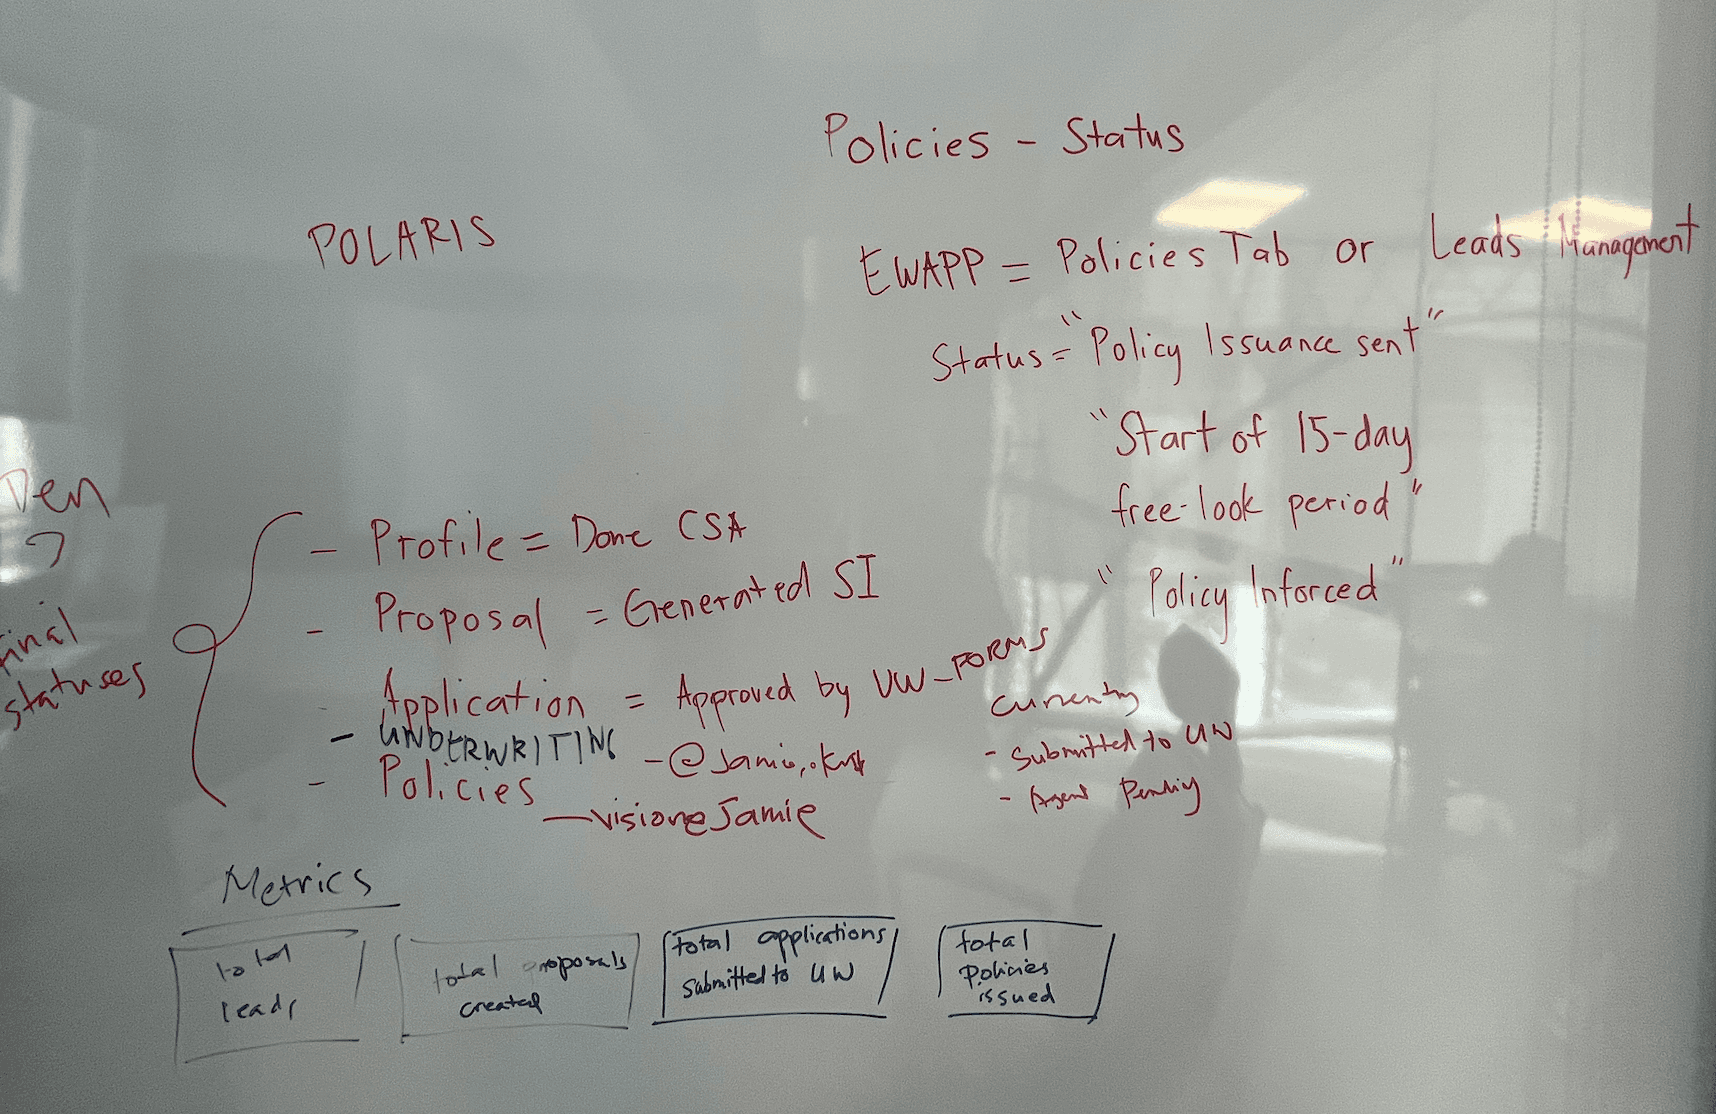 Policies - Status
POLARIS
EWAPP = Policies Tab or Leads Management
Status = "Policy Issuance sent"
"Start of 15-day
free-look period"
"Policy Inforced"
Den
final
statuses
- Profile = Done CSA
- Proposal = Generated SI
- Application = Approved by UW_FORMS
- UNDERWRITING
- Policies
- visione Jamie
currently
- Submitted to UW
- Agent Pending
Metrics
total
leads
total proposals
created
total applications
submitted to UW
total
Policies
issued